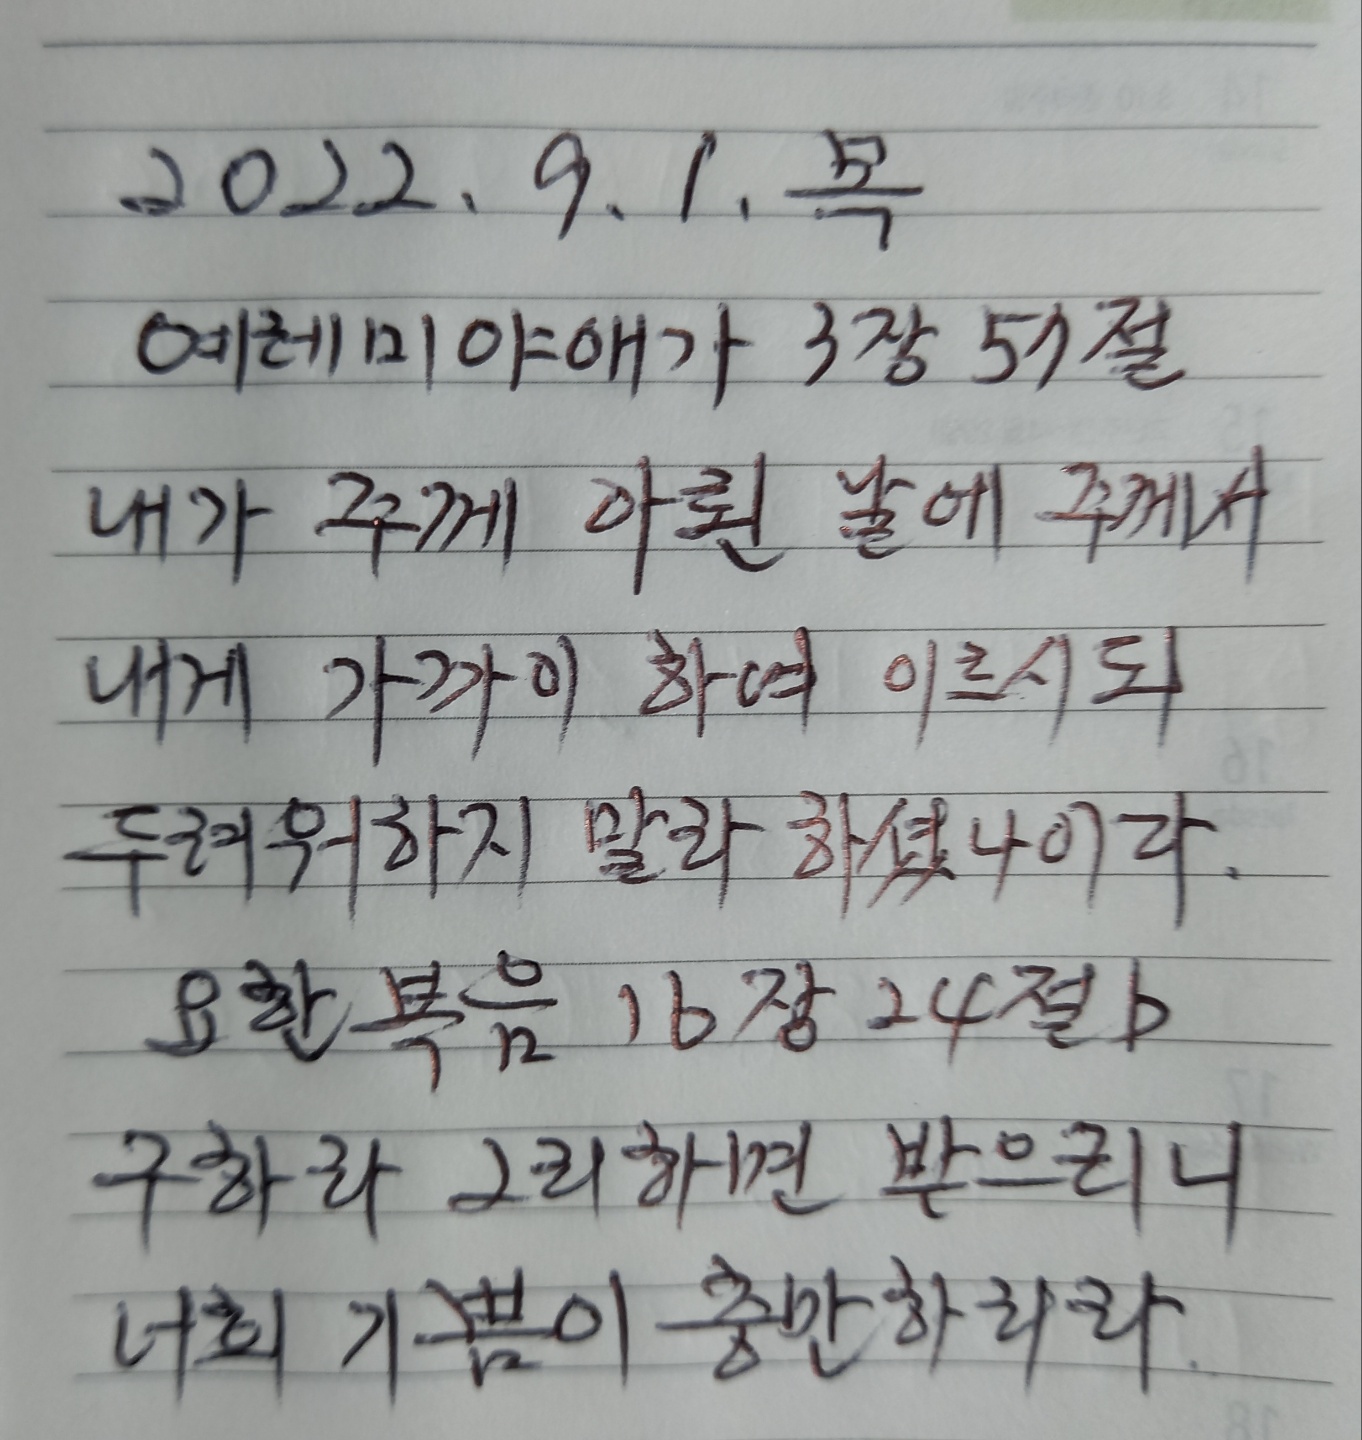 2022. 9. 1. 목
예레미야애가 3장 57절
내가 주께 아뢴 날에 주께서
내게 가까이 하여 이르시되
두려워하지 말라 하셨나이다.
요한복음 16장 24절b
구하라 그리하면 받으리니
너희 기쁨이 충만하리라.